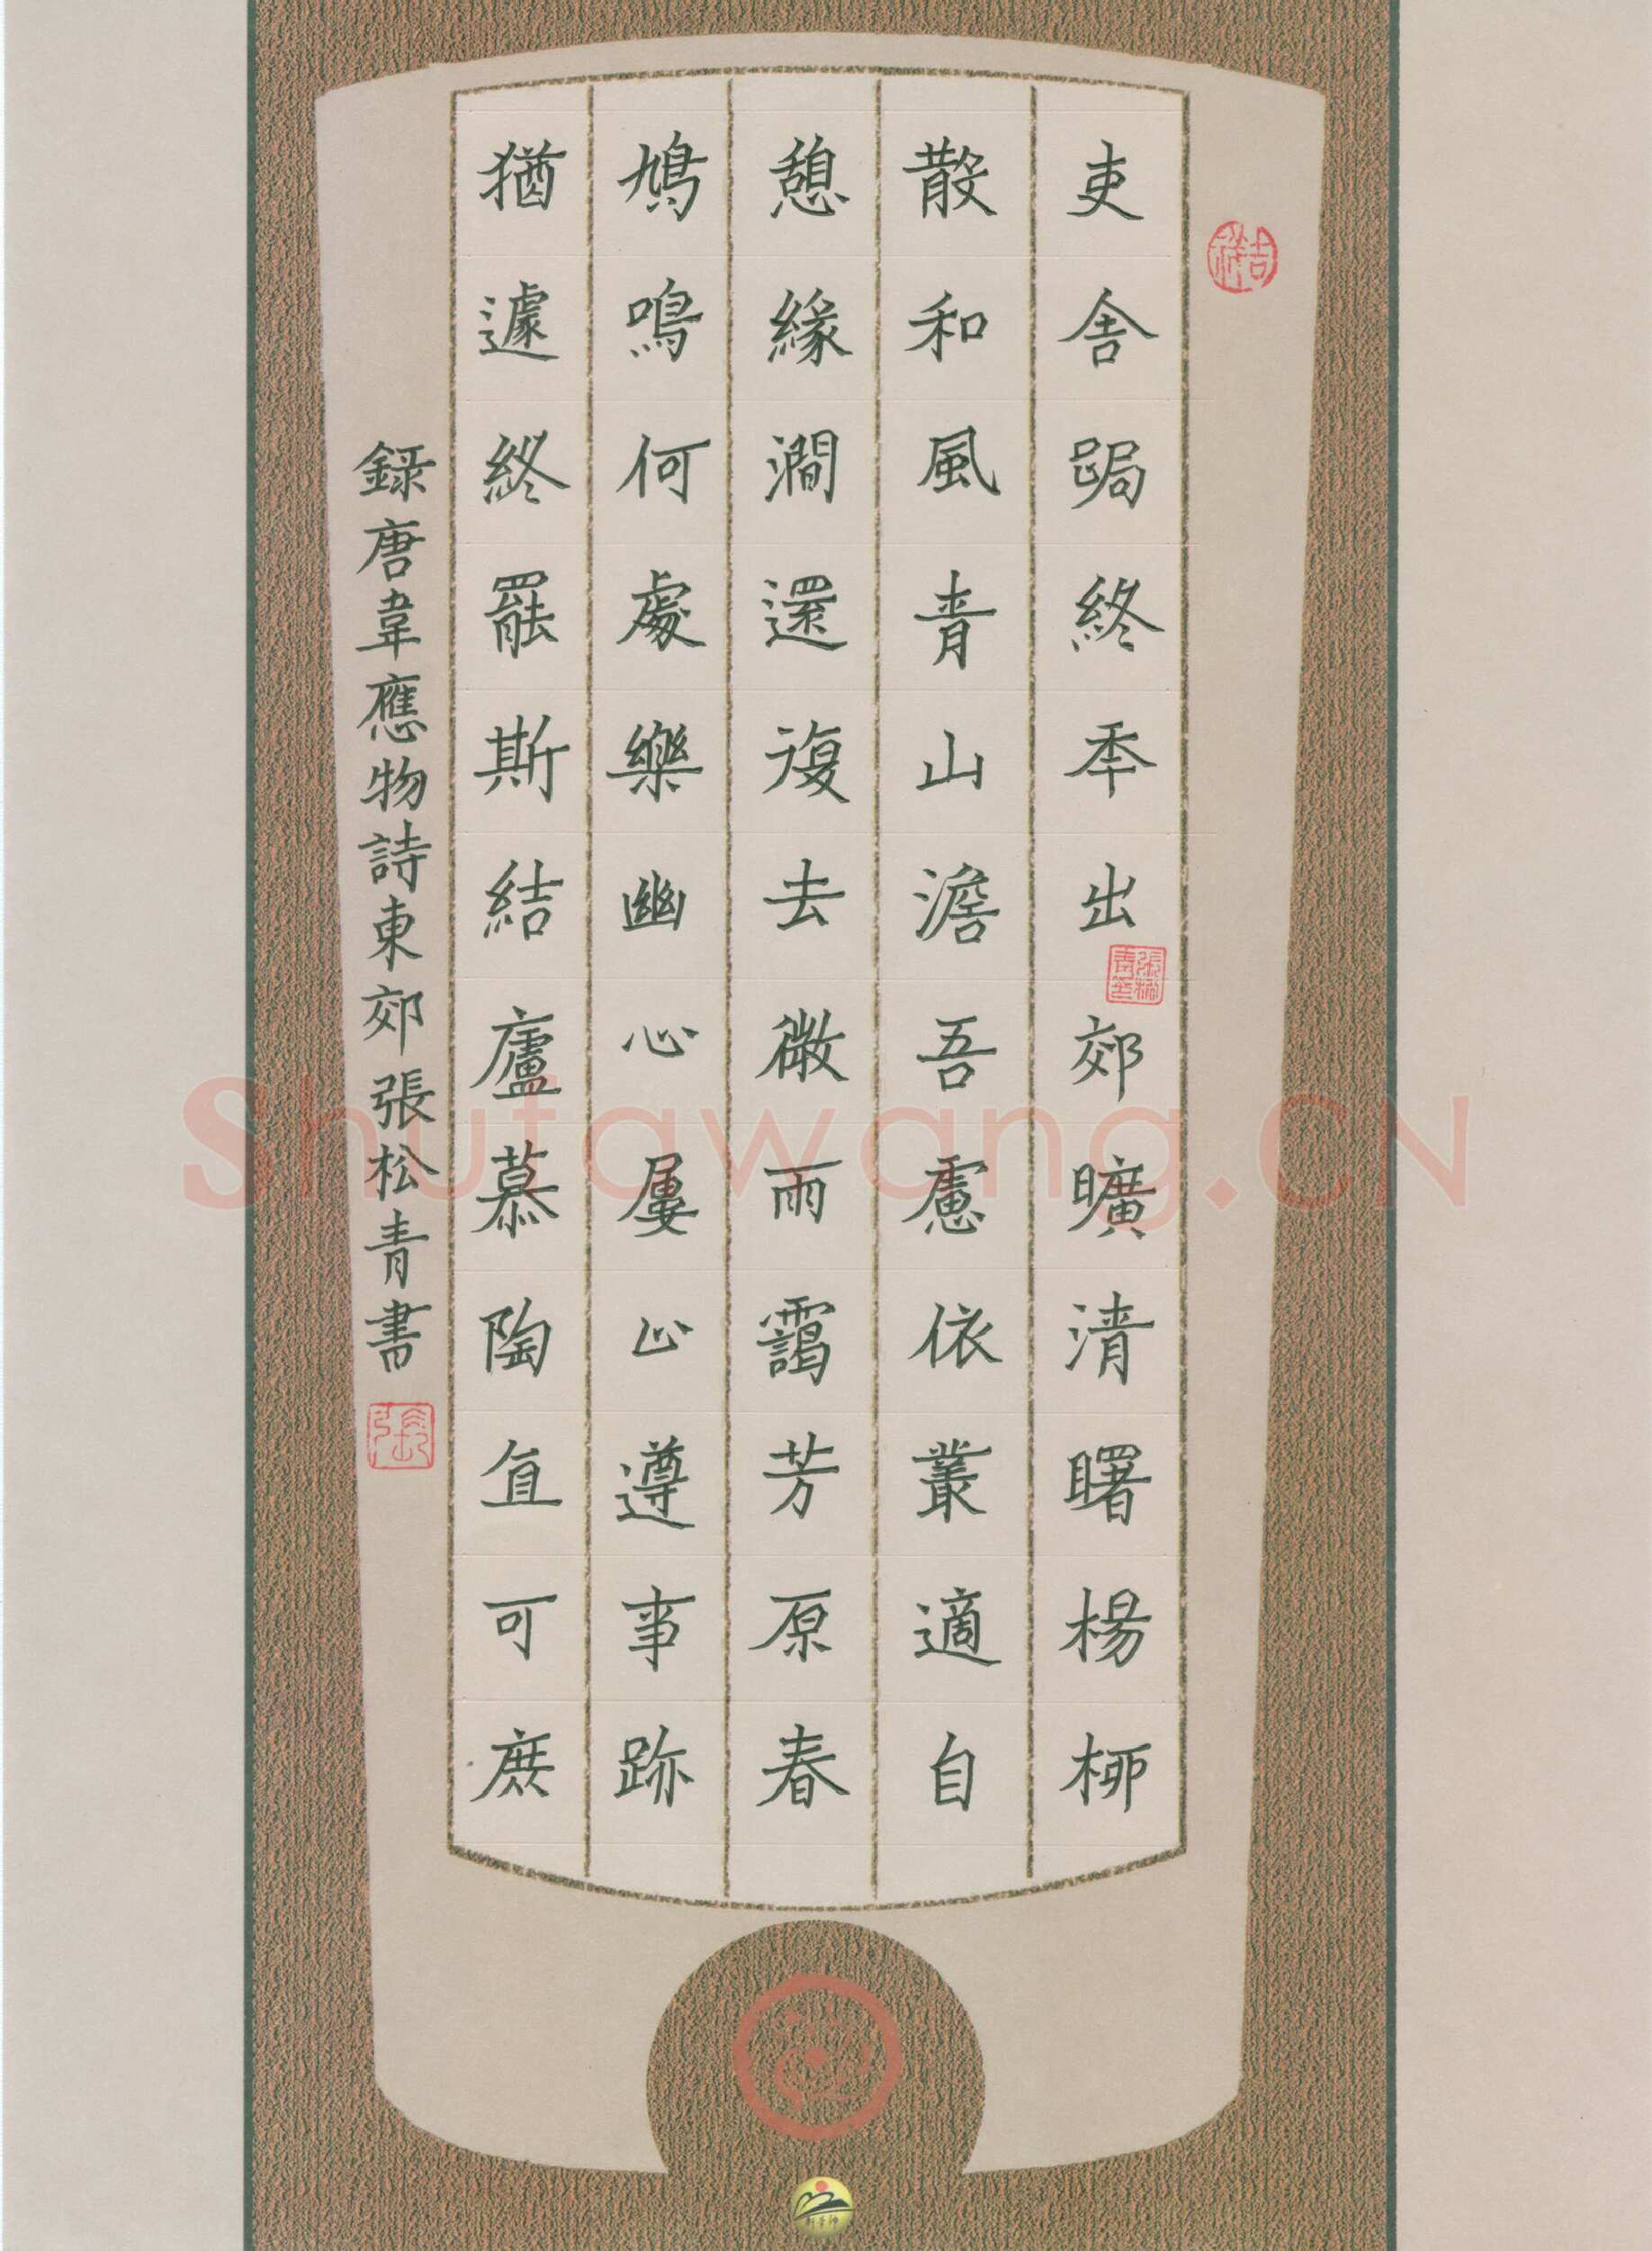 吏舍跼終年出郊曠清曙楊柳
散和風青山澹吾慮依叢適自
憩緣澗還復去微雨靄芳原春
鳩鳴何處樂幽心屢止遵事跡
猶遽終罷斯結廬慕陶直可庶
錄唐韋應物詩東郊張松青書
吉祥
張松青印
張
Shufawang.CN